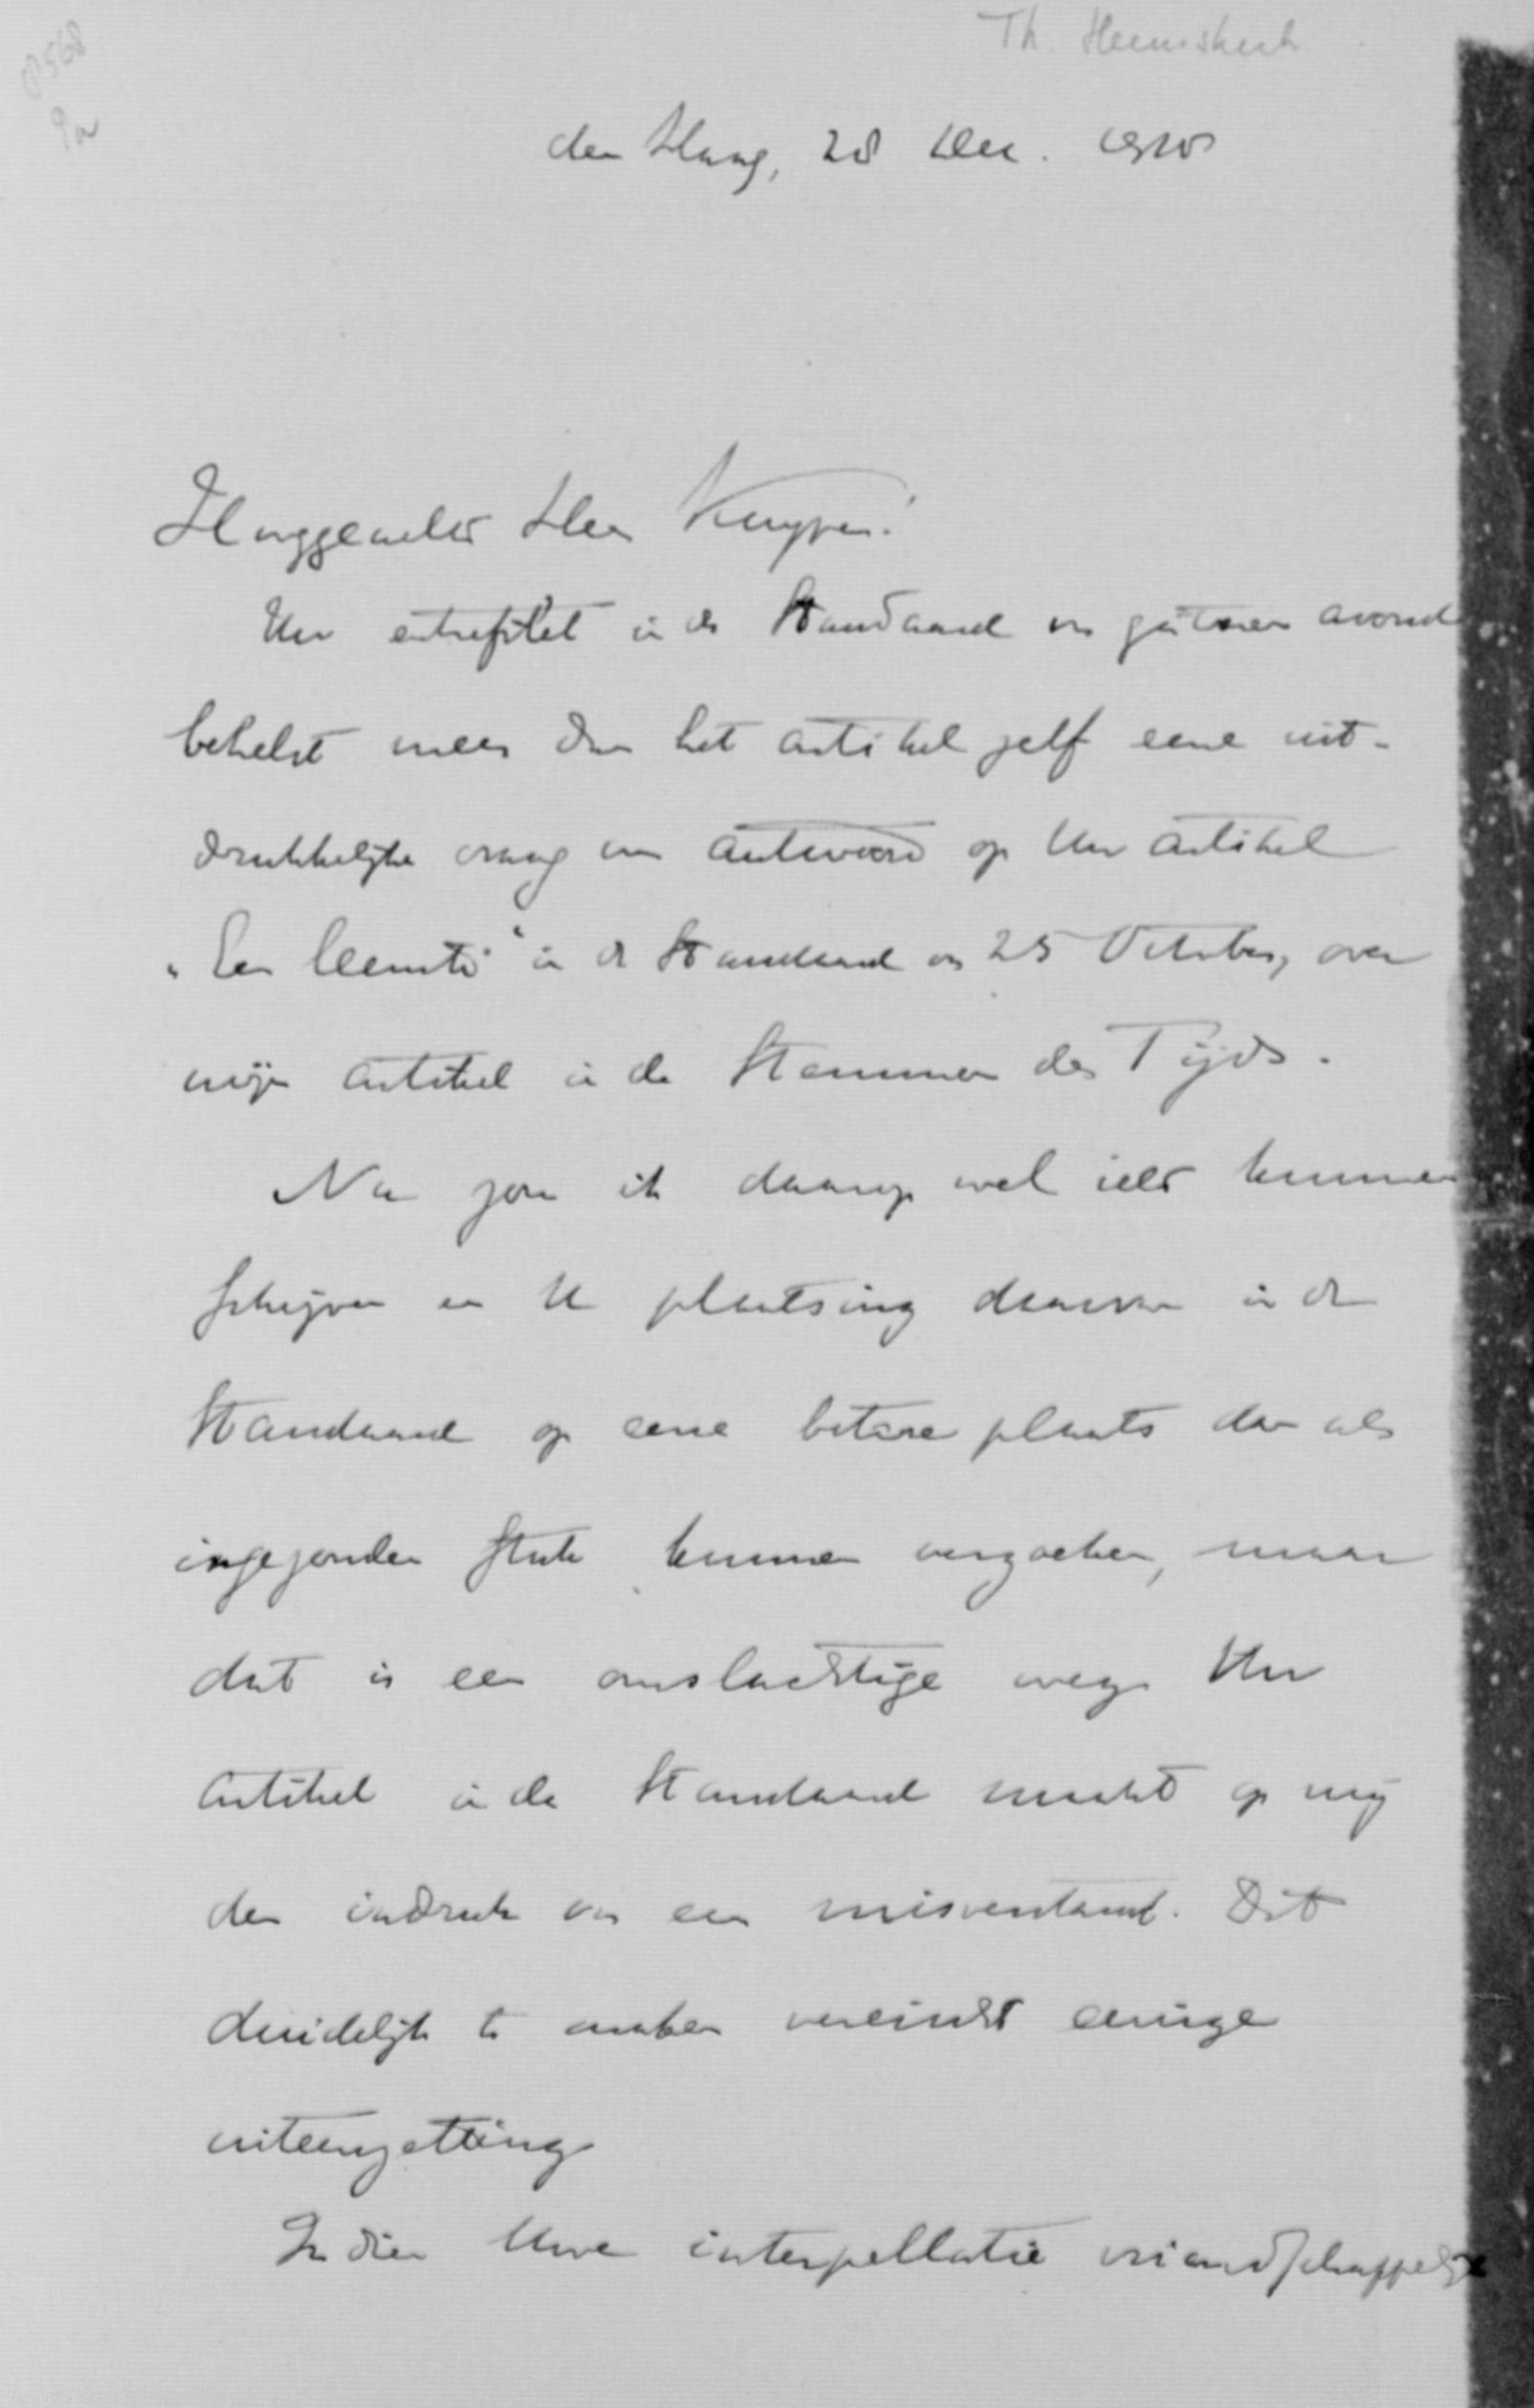 Th. Heemskerk
8568
9a
den Haag, 28 Dec.
Hooggeachte Heer Kuyper!
Uw entrefilet in de Standaard van gisteren avond
behelst meer dan het artikel zelf eene uit-
drukkelijke vraag om antwoord op Uw artikel
„Een leemte" in de Standaard van 25 October, over
mijn artikel in de Stemmen des Tijds.
Nu zou ik daarop wel iets kunnen
schrijven en U plaatsing daarvan in de
Standaard op eene betere plaats dan als
ingezonden stuk kunnen verzoeken, maar
dat is een omslachtige weg. Uw
artikel in de Standaard maakt op mij
den indruk van een misverstand. Dit
duidelijk te maken vereischt eenige
uiteenzetting.
Indien Uwe interpellatie vriendschappelijk